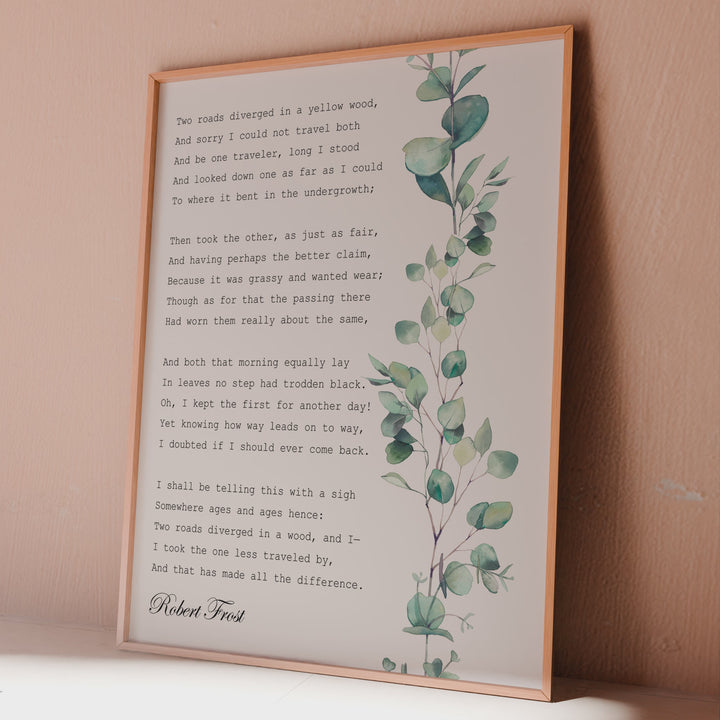 Two roads diverged in a yellow wood,
And sorry I could not travel both
And be one traveler, long I stood
And looked down one as far as I could
To where it bent in the undergrowth;
Then took the other, as just as fair,
And having perhaps the better claim,
Because it was grassy and wanted wear;
Though as for that the passing there
Had worn them really about the same,
And both that morning equally lay
In leaves no step had trodden black.
Oh, I kept the first for another day!
Yet knowing how way leads on to way,
I doubted if I should ever come back.
I shall be telling this with a sigh
Somewhere ages and ages hence:
Two roads diverged in a wood, and I—
I took the one less traveled by,
And that has made all the difference.
Robert Frost